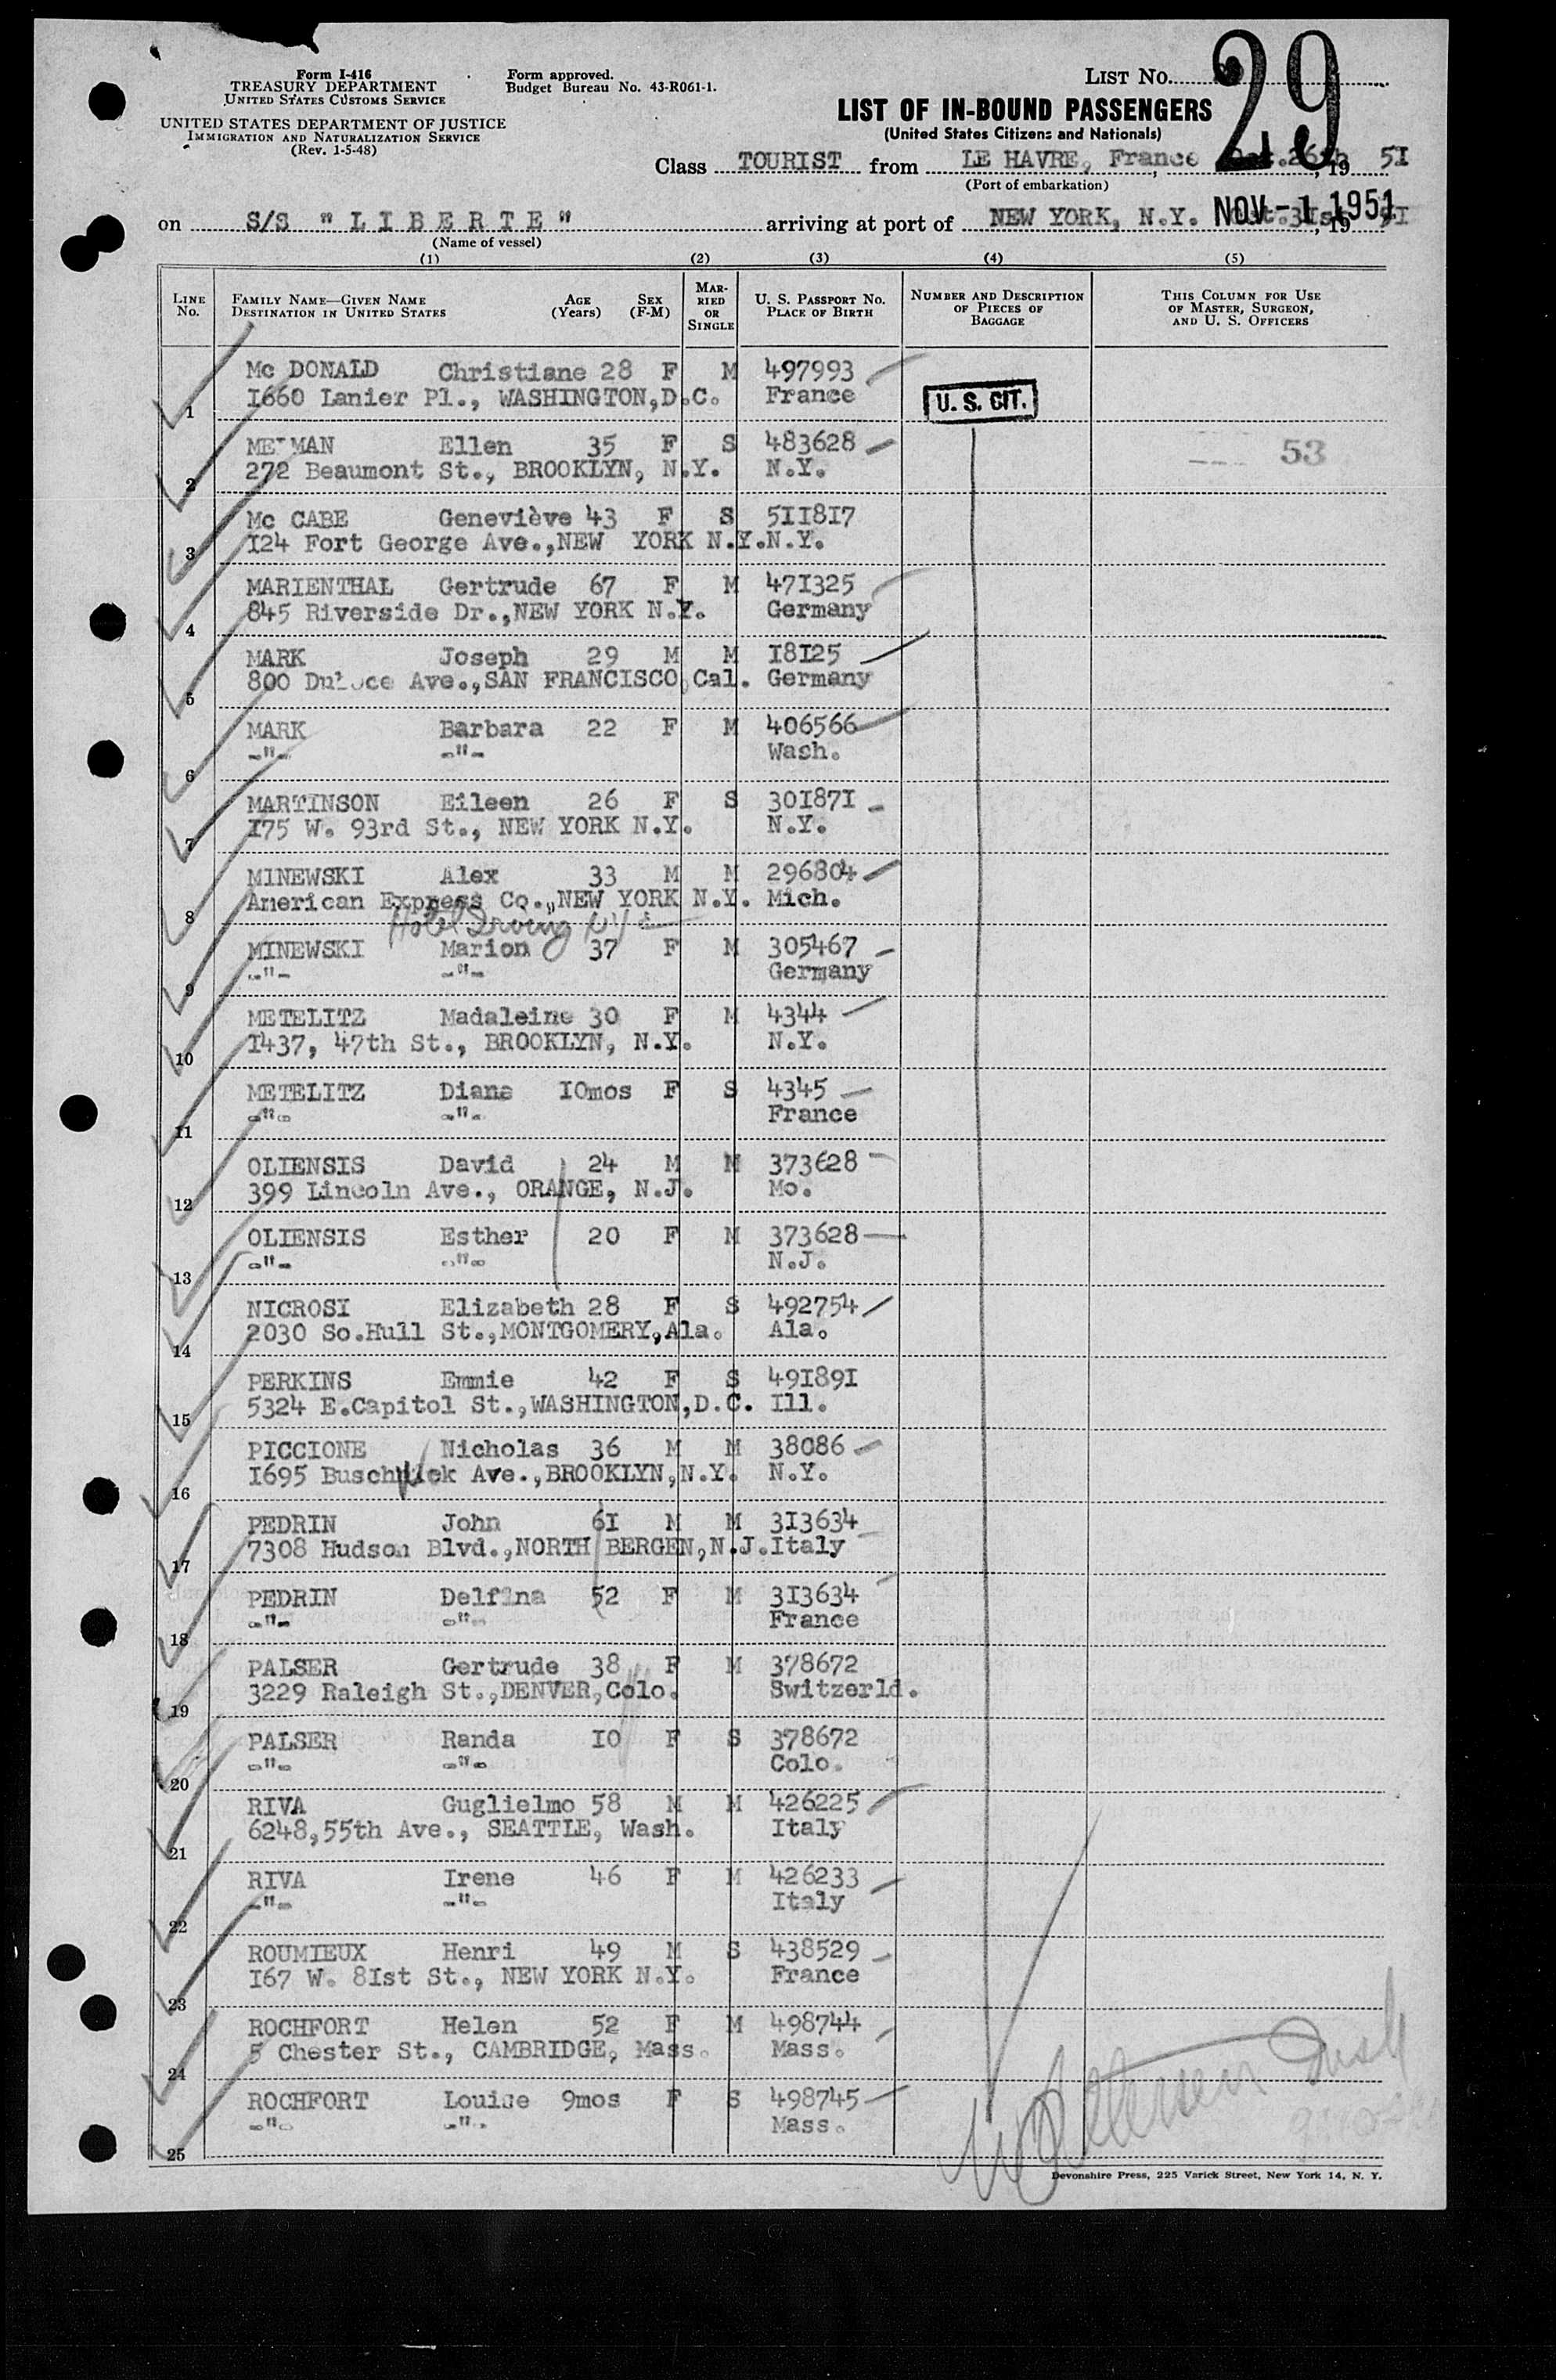 Form I-416
TREASURY DEPARTMENT
UNITED STATES CUSTOMS SERVICE
UNITED STATES DEPARTMENT OF JUSTICE
IMMIGRATION AND NATURALIZATION SERVICE
(Rev. 1-5-48)
Form approved.
Budget Bureau No. 43-R061-1.
LIST No. 29
LIST OF IN-BOUND PASSENGERS
(United States Citizens and Nationals)
Class TOURIST from LE HAVRE, France, Oct.26th, 19 51
(Port of embarkation)
on S/S "LIBERTE" arriving at port of NEW YORK, N.Y. Oct.31st, 19 51
NOV - 1 1951
(Name of vessel)
(1) (2) (3) (4) (5)
LINE No. FAMILY NAME—GIVEN NAME DESTINATION IN UNITED STATES AGE (Years) SEX (F-M) MARRIED OR SINGLE U. S. PASSPORT No. PLACE OF BIRTH NUMBER AND DESCRIPTION OF PIECES OF BAGGAGE THIS COLUMN FOR USE OF MASTER, SURGEON, AND U. S. OFFICERS
Mc DONALD Christiane 28 F M 497993
1 1660 Lanier Pl., WASHINGTON,D.C. France
U. S. CIT.
Ellen 35 F S 483628 53
2 272 Beaumont St., BROOKLYN, N.Y. N.Y.
Mc CABE Geneviève 43 F S 511817
3 124 Fort George Ave.,NEW YORK N.Y. N.Y.
MARIENTHAL Gertrude 67 F M 471325
4 845 Riverside Dr.,NEW YORK N.Y. Germany
MARK Joseph 29 M M 18125
5 800 Ave.,SAN FRANCISCO Cal. Germany
MARK Barbara 22 F M 406566
6 -"- -"- Wash.
MARTINSON Eileen 26 F S 301871
7 175 W. 93rd St., NEW YORK N.Y. N.Y.
MINEWSKI Alex 33 M M 296804
8 American Express Co.,NEW YORK N.Y. Mich.
Hotel Irving NY
MINEWSKI Marion 37 F M 305467
9 -"- -"- Germany
METELITZ Madaleine 30 F M 4344
10 1437, 47th St., BROOKLYN, N.Y. N.Y.
METELITZ Diane 10mos F S 4345
11 -"- -"- France
OLIENSIS David 24 M M 373628
12 399 Lincoln Ave., ORANGE, N.J. Mo.
OLIENSIS Esther 20 F M 373628
13 -"- -"- N.J.
NICROSI Elizabeth 28 F S 492754
14 2030 So.Hull St.,MONTGOMERY,Ala. Ala.
PERKINS Emmie 42 F S 491891
15 5324 E.Capitol St.,WASHINGTON,D.C. Ill.
PICCIONE Nicholas 36 M M 38086
16 1695 Buschwick Ave.,BROOKLYN,N.Y. N.Y.
PEDRIN John 61 M M 313634
17 7308 Hudson Blvd.,NORTH BERGEN,N.J. Italy
PEDRIN Delfina 52 F M 313634
18 -"- -"- France
PALSER Gertrude 38 F M 378672
19 3229 Raleigh St.,DENVER,Colo. Switzerld.
PALSER Randa 10 F S 378672
20 -"- -"- Colo.
RIVA Guglielmo 58 M M 426225
21 6248,55th Ave., SEATTLE, Wash. Italy
RIVA Irene 46 F M 426233
22 -"- -"- Italy
ROUMIEUX Henri 49 M S 438529
23 167 W. 81st St., NEW YORK N.Y. France
ROCHFORT Helen 52 F M 498744
24 5 Chester St., CAMBRIDGE, Mass. Mass.
ROCHFORT Louise 9mos F S 498745
25 -"- -"- Mass.
Devonshire Press, 225 Varick Street, New York 14, N. Y.